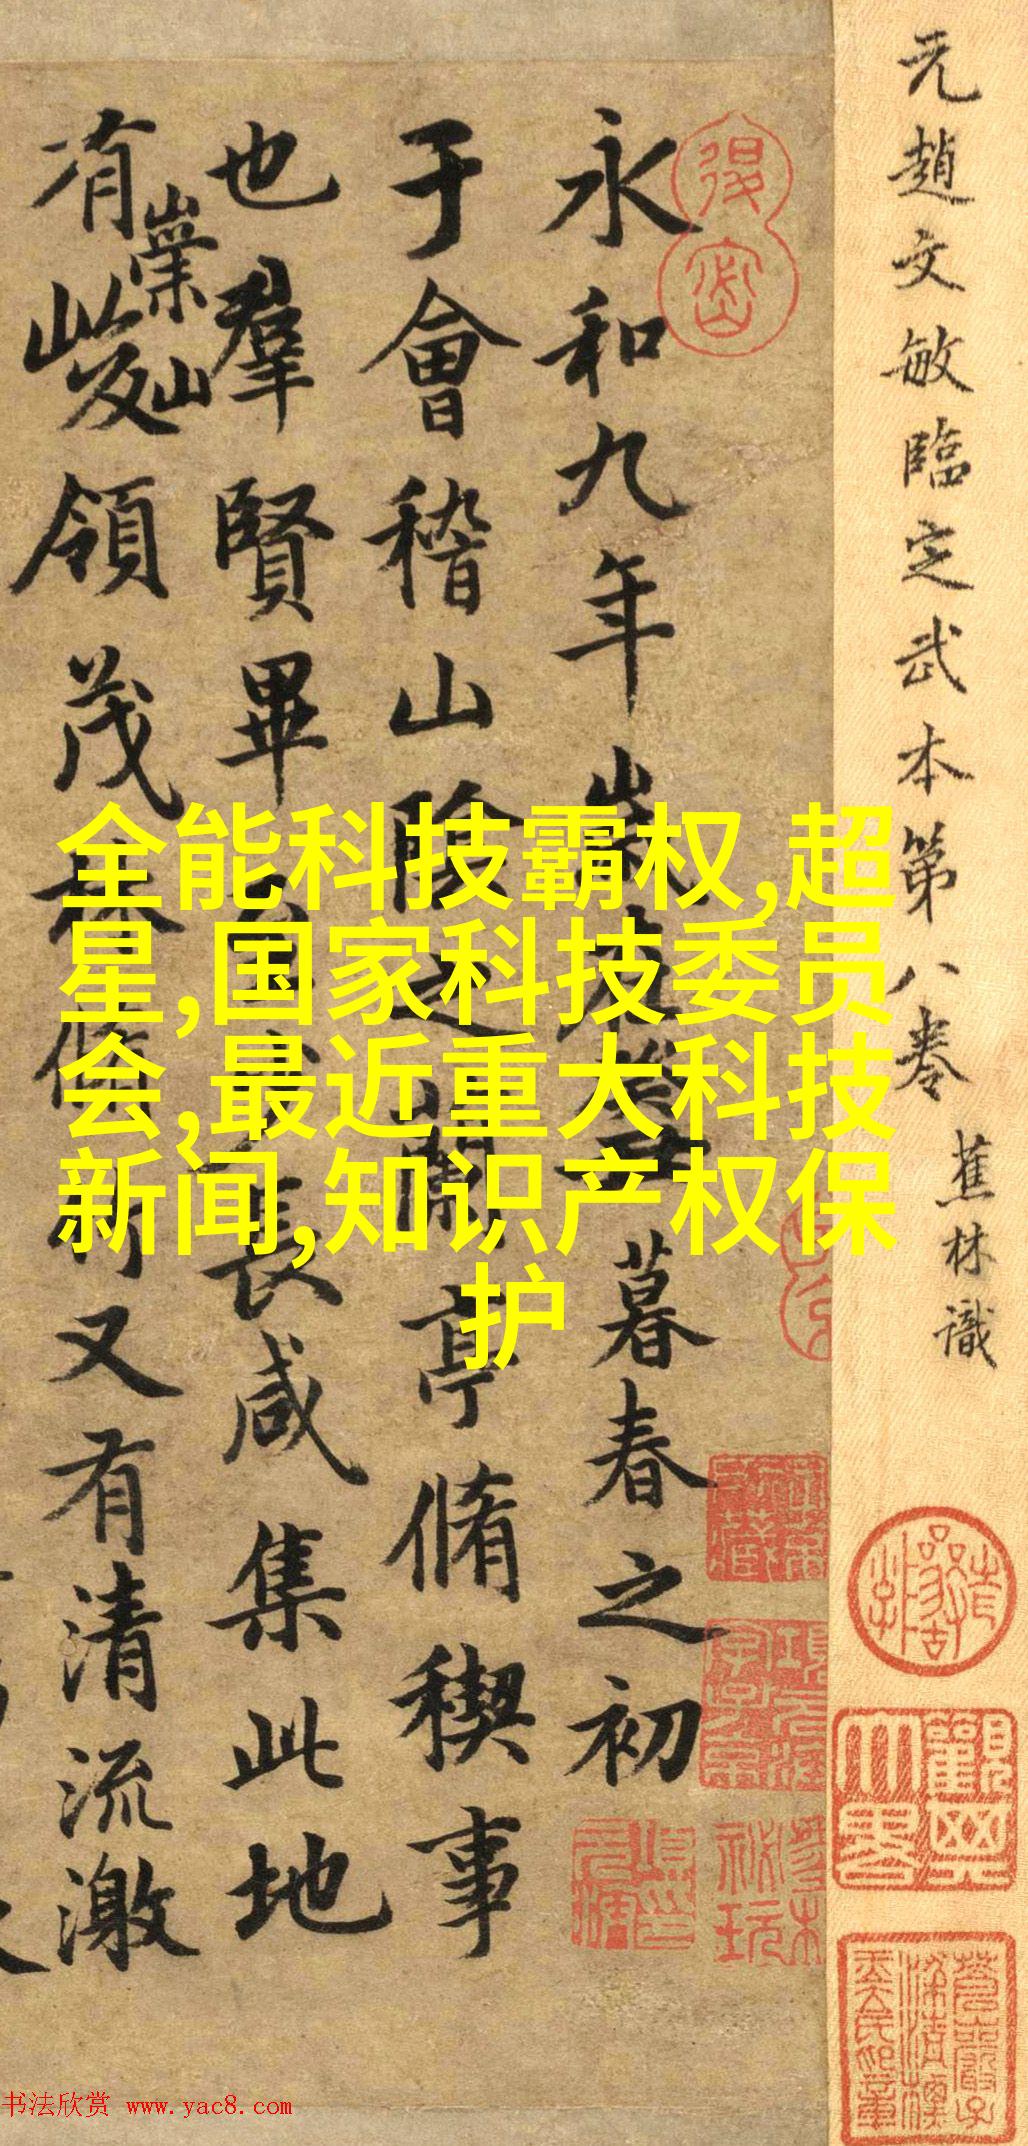 元趙文敏臨定武本第八卷
蕉林識
永和九年歲在癸丑暮春之初
于會稽山陰之蘭亭脩稧事
也羣賢畢至少長咸集此地
有崇山峻領茂林脩竹又有清流激
全能科技霸权,超
星,国家科技委员
会,最近重大科技
新闻,知识产权保
护
书法欣赏 www.yac8.com